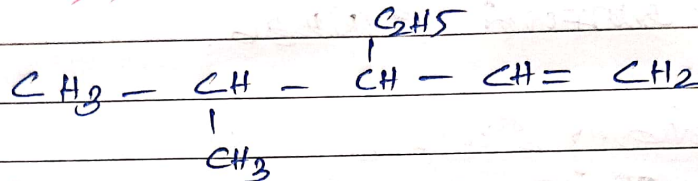 C2H5
|
CH3 - CH - CH - CH = CH2
|
CH3